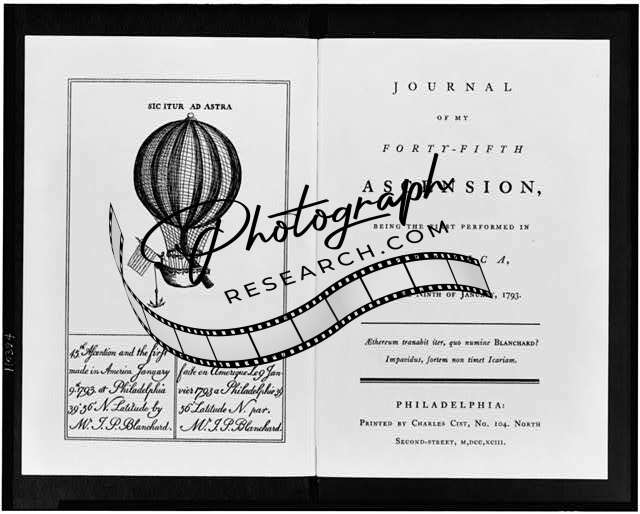 SIC ITUR AD ASTRA
45th Ascention and the first
made in America January
9th 1793. at Philadelphia
39°56' N. Latitude by
Mr. J. P. Blanchard.
faite en Amerique Le 9 Jan-
vier 1793 a Philadelphie 39°
56' Latitude N. par.
Mr. J. P. Blanchard.
JOURNAL
OF MY
FORTY-FIFTH
ASCENSION,
BEING THE FIRST PERFORMED IN
CA,
NINTH OF JANUARY, 1793.
Æthereum tranabit iter, quo numine BLANCHARD?
Impavidus, sortem non timet Icariam.
PHILADELPHIA:
PRINTED BY CHARLES CIST, NO. 104. NORTH
SECOND-STREET, M,DCC,XCIII.
Photograph
RESEARCH.COM